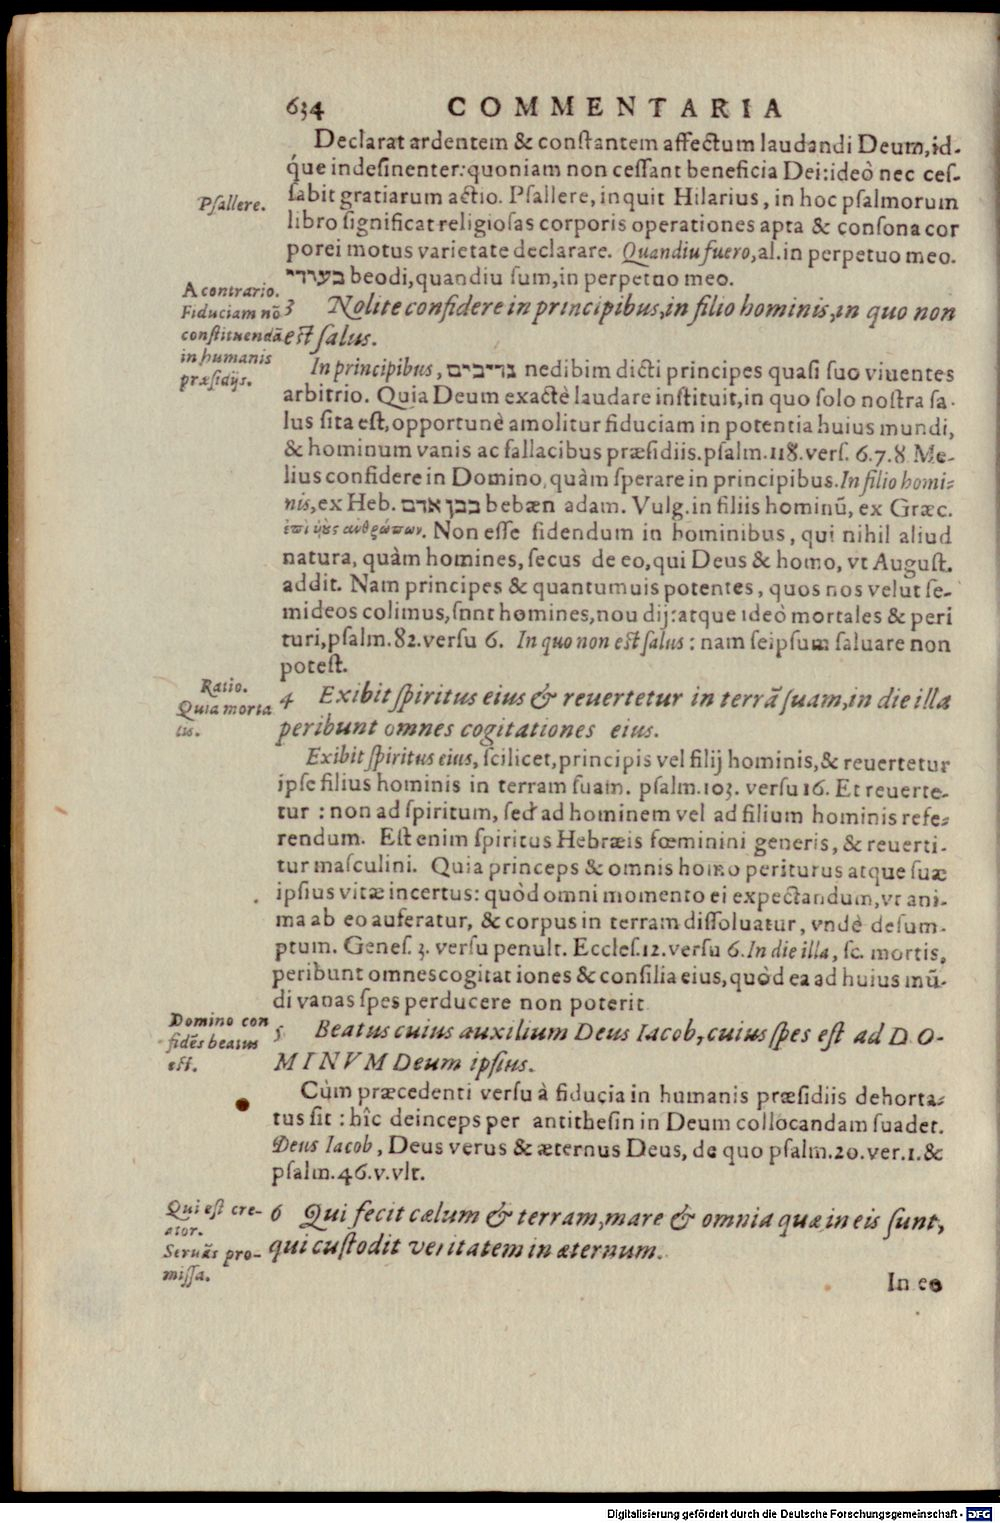 634 COMMENTARIA
Declarat ardentem & constantem affectum laudandi Deum, id-
q́ue indesinenter: quoniam non cessant beneficia Dei: ideò nec ces-
sabit gratiarum actio. Psallere, inquit Hilarius, in hoc psalmorum
Psallere.
libro significat religiosas corporis operationes apta & consona cor
porei motus varietate declarare. Quandiu fuero, al. in perpetuo meo.
בעודי beodi, quandiu sum, in perpetuo meo.
A contrario.
Fiduciam nõ
constituendã
in humanis
præsidijs.
3 Nolite confidere in principibus, in filio hominis, in quo non
est salus.
In principibus, נדיבים nedibim dicti principes quasi suo viuentes
arbitrio. Quia Deum exactè laudare instituit, in quo solo nostra sa-
lus sita est, opportunè amolitur fiduciam in potentia huius mundi,
& hominum vanis ac fallacibus præsidiis. psalm. 118. vers. 6. 7. 8 Me-
lius confidere in Domino, quàm sperare in principibus. In filio homi-
nis, ex Heb. בבן אדם bebæn adam. Vulg. in filiis hominũ, ex Græc.
ἐπὶ υἱοὺς ἀνθρώπων. Non esse fidendum in hominibus, qui nihil aliud
natura, quàm homines, secus de eo, qui Deus & homo, vt August.
addit. Nam principes & quantumuis potentes, quos nos velut se-
mideos colimus, snnt homines, nou dij: atque ideò mortales & peri
turi, psalm. 82. versu 6. In quo non est salus: nam seipsum saluare non
potest.
Ratio.
Quia morta
les.
4 Exibit spiritus eius & reuertetur in terrã suam, in die illa
peribunt omnes cogitationes eius.
Exibit spiritus eius, scilicet, principis vel filij hominis, & reuertetur
ipse filius hominis in terram suam. psalm. 103. versu 16. Et reuerte-
tur: non ad spiritum, sed ad hominem vel ad filium hominis refe-
rendum. Est enim spiritus Hebræis fœminini generis, & reuerti-
tur masculini. Quia princeps & omnis homo periturus atque suæ
ipsius vitæ incertus: quòd omni momento ei expectandum, vt ani-
ma ab eo auferatur, & corpus in terram dissoluatur, vndè desum-
ptum. Genes. 3. versu penult. Eccles. 12. versu 6. In die illa, sc. mortis,
peribunt omnes cogitationes & consilia eius, quòd ea ad huius mũ-
di vanas spes perducere non poterit
Domino con
fidẽs beatus
est.
5 Beatus cuius auxilium Deus Iacob, cuius spes est ad DO-
MINVM Deum ipsius.
Cùm præcedenti versu à fiducia in humanis præsidiis dehorta-
tus sit: hîc deinceps per antithesin in Deum collocandam suadet.
Deus Iacob, Deus verus & æternus Deus, de quo psalm. 20. ver. 1. &
psalm. 46. v. vlt.
Qui est cre-
ator.
Seruãs pro-
missa.
6 Qui fecit cælum & terram, mare & omnia quæ in eis sunt,
qui custodit veritatem in æternum.
In eo
Digitalisierung gefördert durch die Deutsche Forschungsgemeinschaft - DFG